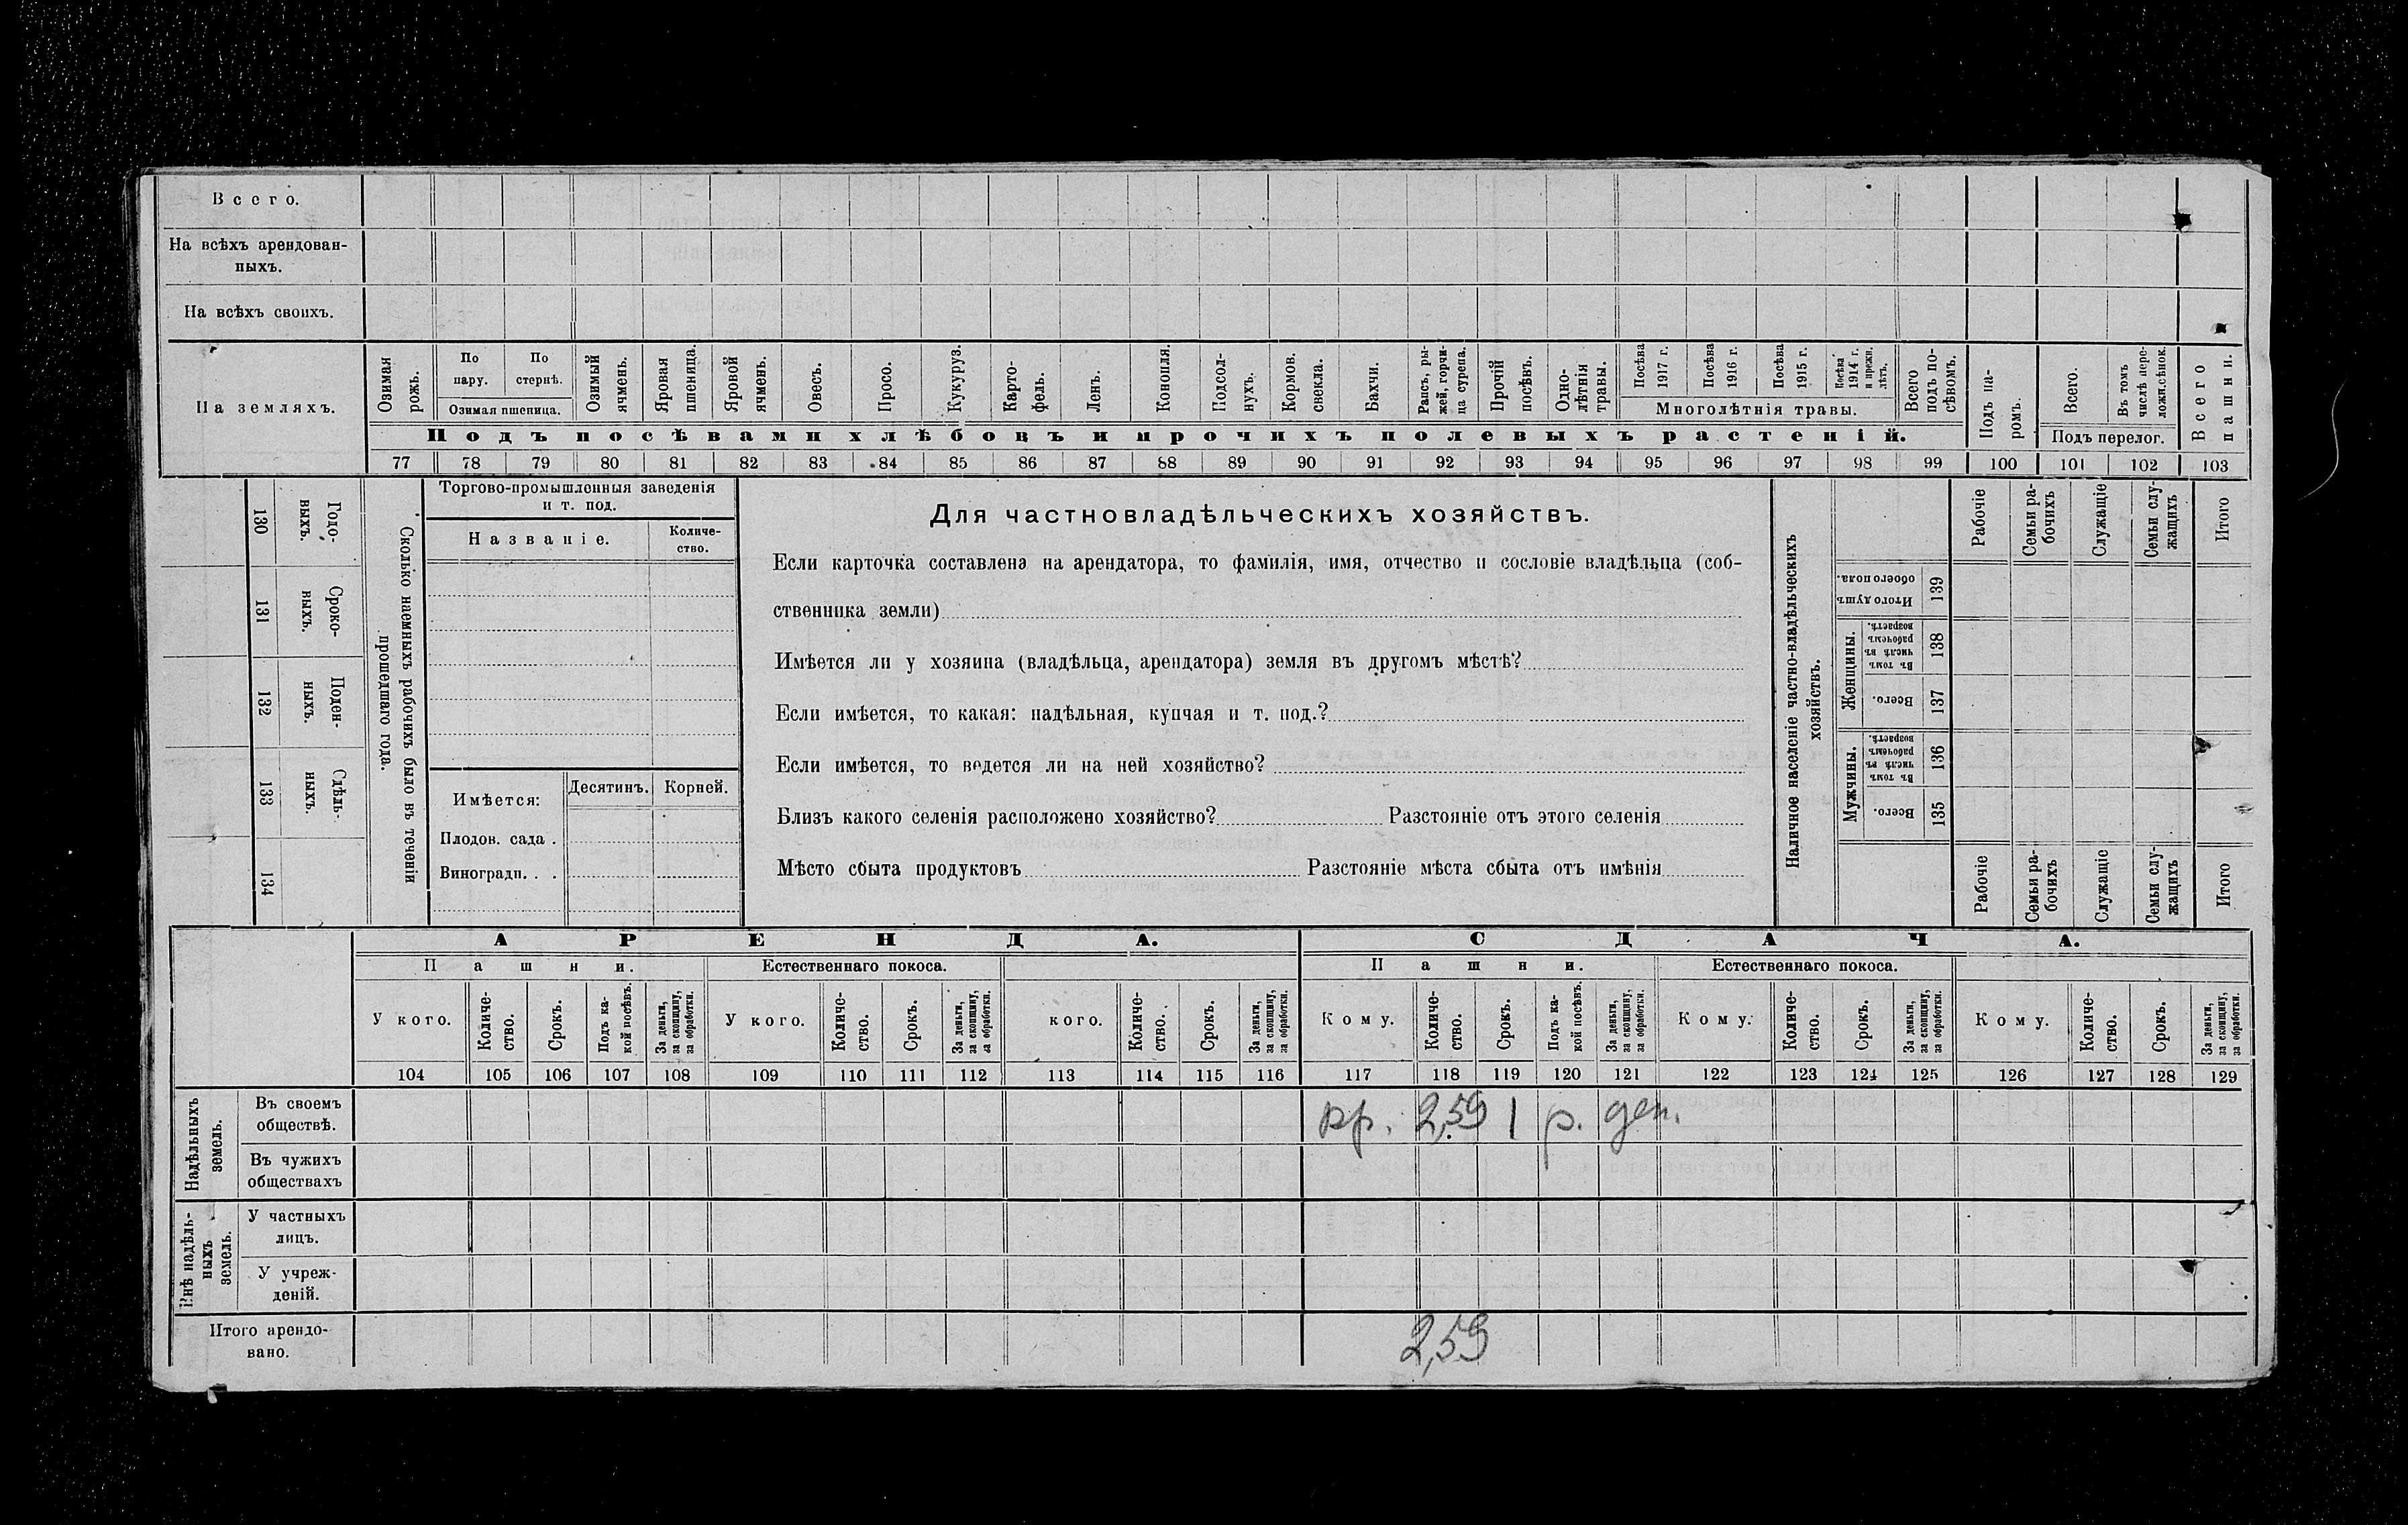 Всего.
На всѣхъ арендован-
ныхъ.
На всѣхъ своихъ.
На земляхъ.
Озимая рожь.
По пару.
По стернѣ.
Озимая пшеница.
Озимый ячмень.
Яровая пшеница.
Яровой ячмень.
Овесъ.
Просо.
Кукуруз.
Карто-
фель.
Ленъ.
Конопля.
Подсол-
нухъ.
Кормов. свекла.
Бахчи.
Рапсъ, ры-
жей, горчи-
ца сурепа.
Прочій посѣвъ.
Одно-
лѣтнія травы.
Посѣва 1917 г.
Посѣва 1916 г.
Посѣва 1915 г.
Посѣва 1914 г. и прежн. лѣтъ.
Многолѣтнія травы.
Всего подъ по-
сѣвомъ.
Подъ па-
ромъ.
Всего.
Въ томъ числѣ пере-
ложн. сѣнок.
Подъ перелог.
Всего пашни.
Подъ посѣвами хлѣбовъ и прочихъ полевыхъ растеній.
77 78 79 80 81 82 83 84 85 86 87 88 89 90 91 92 93 94 95 96 97 98 99 100 101 102 103
130 Годо-
ныхъ.
131 Сроко-
ныхъ.
132 Поден-
ныхъ.
133 Сдѣль-
ныхъ.
134
Сколько наемныхъ рабочихъ было въ теченіи
прошедшаго года.
Торгово-промышленныя заведенія
и т. под.
Названіе.
Количе-
ство.
Имѣется:
Десятинъ.
Корней.
Плодов. сада .
Виноградн. . .
Для частновладѣльческихъ хозяйствъ.
Если карточка составлена на арендатора, то фамилія, имя, отчество и сословіе владѣльца (соб-
ственника земли)
Имѣется ли у хозяина (владѣльца, арендатора) земля въ другомъ мѣстѣ?
Если имѣется, то какая: надѣльная, купчая и т. под.?
Если имѣется, то ведется ли на ней хозяйство?
Близъ какого селенія расположено хозяйство? Разстояніе отъ этого селенія
Мѣсто сбыта продуктовъ Разстояніе мѣста сбыта отъ имѣнія
Наличное населеніе частно-владѣльческихъ
хозяйствъ.
Рабочіе
Семьи ра-
бочихъ
Служащіе
Семьи слу-
жащихъ
Итого
Итого душъ обоего пола. 139
Женщины.
Въ томъ числѣ въ рабочемъ возрастѣ. 138
Всего. 137
Мужчины.
Въ томъ числѣ въ рабочемъ возрастѣ. 136
Всего. 135
Рабочіе
Семьи ра-
бочихъ
Служащіе
Семьи слу-
жащихъ
Итого
АРЕНДА.
СДАЧА.
Пашни.
Естественнаго покоса.
Пашни.
Естественнаго покоса.
У кого.
Количе-
ство.
Срокъ.
Подъ ка-
кой посѣвъ.
За деньги, за скопщину, за обработки.
У кого.
Количе-
ство.
Срокъ.
За деньги, за скопщину, за обработки.
кого.
Количе-
ство.
Срокъ.
За деньги, за скопщину, за обработки.
Кому.
Количе-
ство.
Срокъ.
Подъ ка-
кой посѣвъ.
За деньги, за скопщину, за обработки.
Кому.
Количе-
ство.
Срокъ.
За деньги, за скопщину, за обработки.
Кому.
Количе-
ство.
Срокъ.
За деньги, за скопщину, за обработки.
104 105 106 107 108 109 110 111 112 113 114 115 116 117 118 119 120 121 122 123 124 125 126 127 128 129
Надѣльныхъ земель.
Въ своемъ
обществѣ.
кр. 2,59 1 р. ден.
Въ чужихъ
обществахъ
Внѣ надѣль-
ныхъ земель.
У частныхъ
лицъ.
У учреж-
деній.
Итого арендо-
вано.
2,59